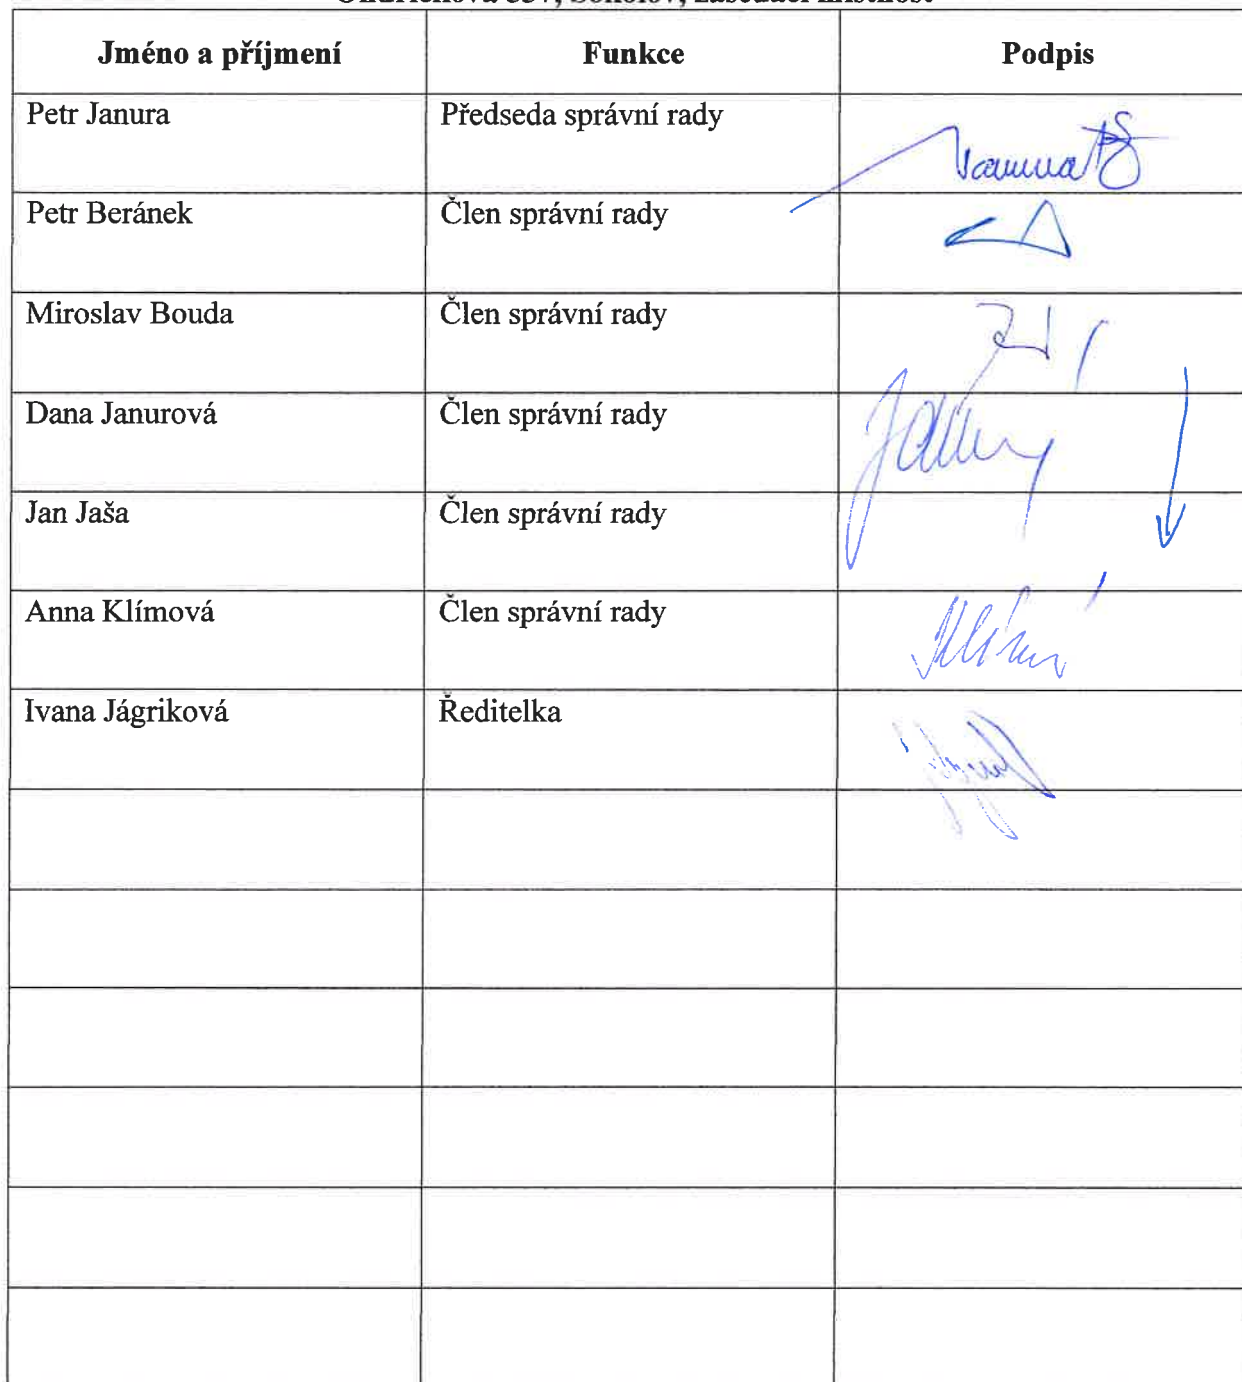 Sokolov, zasedací místnost
Jméno a příjmení Funkce Podpis
Petr Janura Předseda správní rady
Petr Beránek Člen správní rady
Miroslav Bouda Člen správní rady
Dana Janurová Člen správní rady
Jan Jaša Člen správní rady
Anna Klímová Člen správní rady
Ivana Jágriková Ředitelka